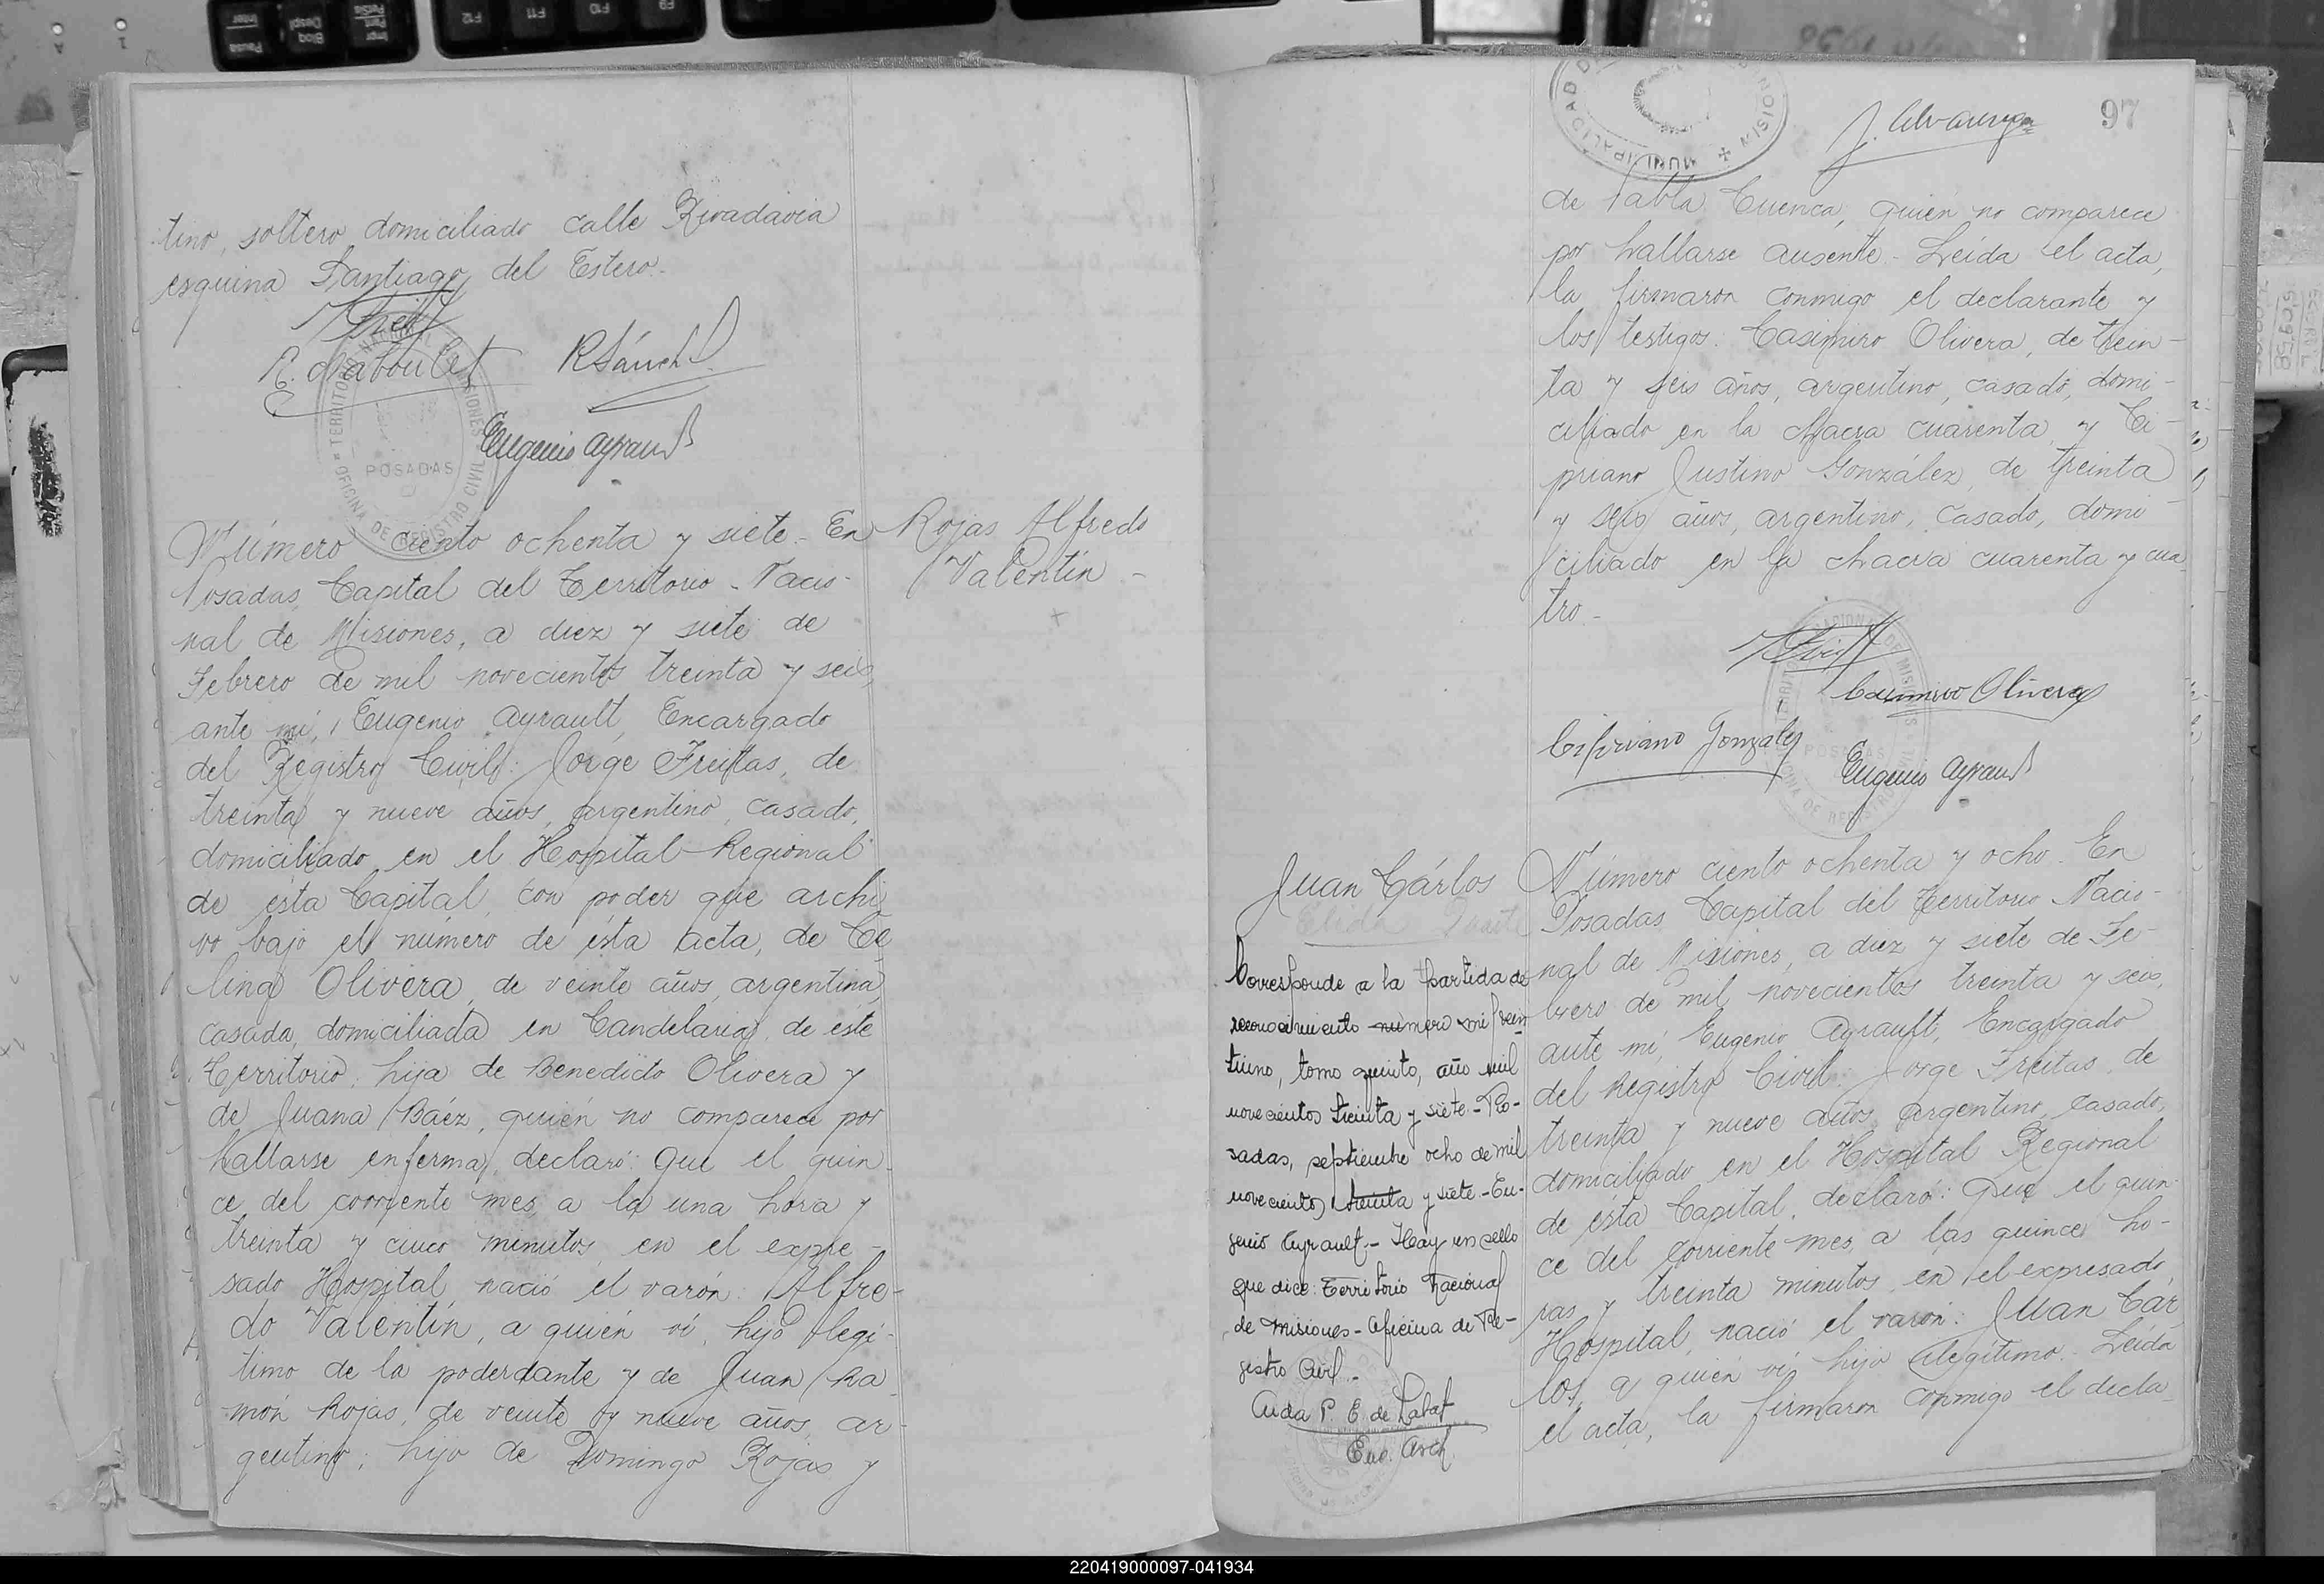 tino, soltero domiciliado calle Rivadavia
esquina Santiago del Estero.-
R. Chaboulet
R Sánch
Eugenio Ayrault
TERRITORIO NACIONAL DE MISIONES
OFICINA DE REGISTRO CIVIL
POSADAS
Rojas Alfredo
Valentín -
Número ciento ochenta y siete.- En
Posadas, Capital del Territorio Nacio-
nal de Misiones, a diez y siete de
Febrero de mil novecientos treinta y seis,
ante mí, Eugenio Ayrault, Encargado
del Registro Civil: Jorge Freitas, de
treinta y nueve años, argentino, casado,
domiciliado en el Hospital Regional
de ésta Capital, con poder que archi
vo bajo el número de ésta acta, de Ce
lina Olivera, de veinte años, argentina,
casada, domiciliada en Candelaria, de este
Territorio, hija de Benedicto Olivera y
de Juana Báez, quién no comparece por
hallarse enferma, declaró: Que el quin-
ce del corriente mes, a la una hora y
treinta y cinco minutos en el expre-
sado Hospital, nació el varón: Alfre-
do Valentín, a quién ví, hijo legí-
timo de la poderdante y de Juan Ra
món Rojas, de veinte y nueve años, ar-
gentino; hijo de Domingo Rojas y
MUNICIPALIDAD D
J. Alvarenga
97
de Pabla Cuenca, quién no comparece
por hallarse ausente.- Leída el acta,
la firmaron conmigo el declarante y
los testigos: Casimiro Olivera, de trein-
ta y seis años, argentino, casado, domi-
ciliado en la chacra cuarenta, y Ci-
priano Justino González, de treinta
y seis años, argentino, casado, domi-
ciliado en la chacra cuarenta y cua
tro.-
Casimiro Olivera
Cipriano Gonzalez
Eugenio Ayrault
POSADAS
Juan Cárlos
Elida Duarte
Corresponde a la partida de
reconocimiento número mil
tiuno, tomo quinto, año mil
novecientos treinta y siete.- Po-
sadas, septiembre ocho de mil
novecientos treinta y siete.- Eu-
genio Ayrault.- Hay un sello
que dice: Territorio Nacional
de Misiones - Oficina de Re-
gistro Civil.-
Aida P. E. de Labat
Enc. Arch.
Número ciento ochenta y ocho. En
Posadas Capital del Territorio Nacio-
nal de Misiones, a diez y siete de Fe-
brero de mil novecientos treinta y seis,
ante mí, Eugenio Ayrault, Encargado
del Registro Civil: Jorge Freitas, de
treinta y nueve años, argentino, casado,
domiciliado en el Hospital Regional
de ésta Capital, declaró: Que el quin-
ce del corriente mes, a las quince ho-
ras y treinta minutos, en el expresado
Hospital, nació el varón: Juan Cár
los, a quién ví, hijo ilegítimo.- Leída
el acta, la firmaron conmigo el decla-
220419000097-041934